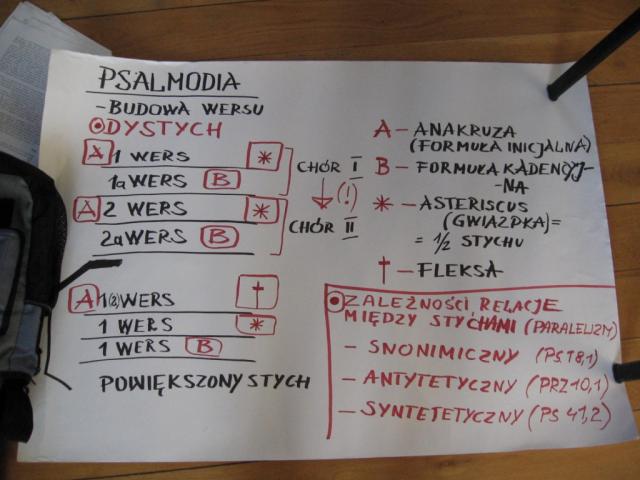 PSALMODIA
- BUDOWA WERSU
DYSTYCH
A 1 WERS *
1a WERS B
A 2 WERS *
2a WERS B
CHÓR I
(!)
CHÓR II
A 1(2) WERS †
1 WERS *
1 WERS B
POWIĘKSZONY STYCH
A – ANAKRUZA
(FORMUŁA INICJALNA)
B – FORMUŁA KADENCYJ-
-NA
* – ASTERISCUS
(GWIAZDKA) =
= 1/2 STYCHU
† – FLEKSA
ZALEŻNOŚCI RELACJE
MIĘDZY STYCHAMI (PARALELIZM)
– SNONIMICZNY (PS 78,1)
– ANTYTETYCZNY (PRZ 10,1)
– SYNTETETYCZNY (PS 41,2)